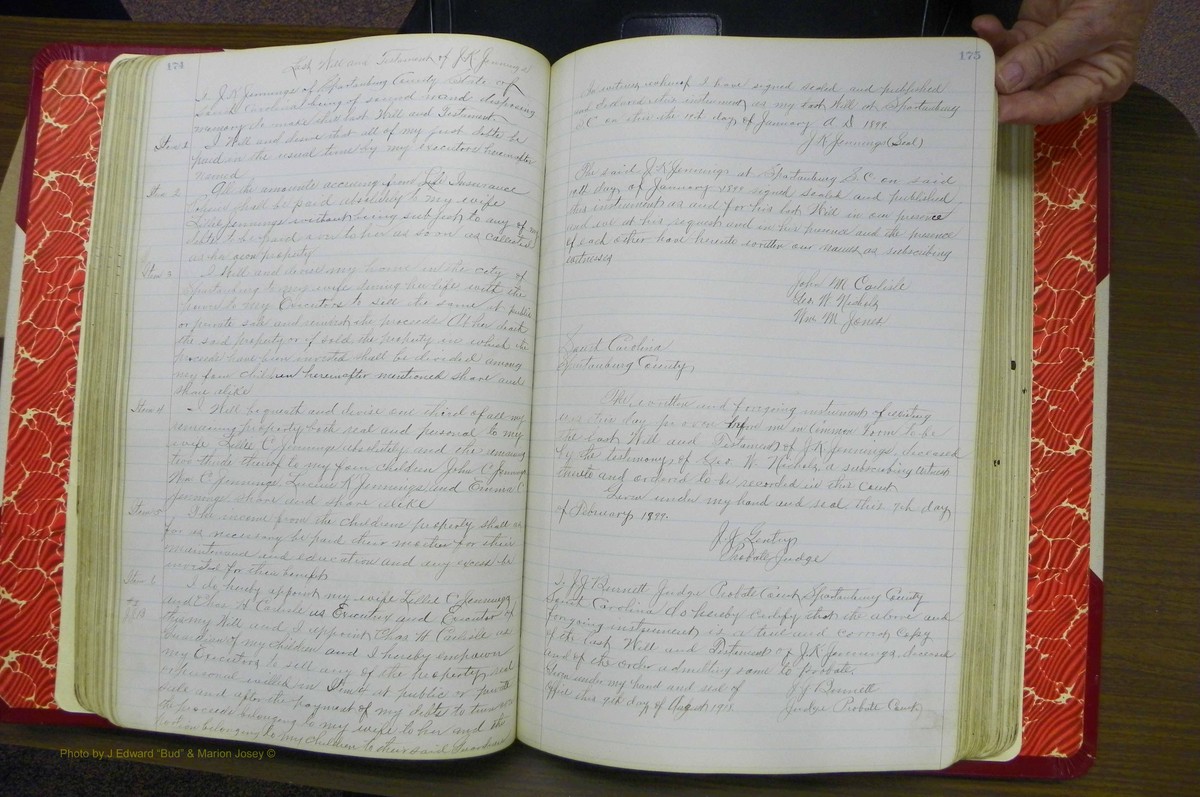 174
Last Will and Testament of J K Jennings
I, J K Jennings of Spartanburg County State of
South Carolina being of sound mind disposing
memory do make this last Will and Testament
Item 1 I Will and desire that all of my just debts be
paid in the usual time by my executors hereinafter
named
Item 2 All the amounts accruing from Life Insurance
shall be paid absolutely to my wife
Lillie Jennings without being subject to any of my
debts to be paid over to her as soon as collected
as her own property
Item 3 I Will and devise my home in the city of
Spartanburg to my wife during her life with the
to my Executors to sell the same at public
or private sale and reinvest the proceeds At her death
the said property or if sold the property in which the
proceeds have been invested shall be divided among
my four children hereinafter mentioned share and
share alike
Item 4 I Will bequeath and devise one third of all my
remaining property both real and personal to my
wife Lillie C Jennings absolutely and the remaining
two thirds thereof to my four children John C Jennings
Wm C Jennings, Lucius K Jennings and Emma C
Jennings share and share alike
Item 5 The income from the childrens property shall as
far as necessary be paid their mother for their
maintenance and education and any excess be
invested for their benefit
Item 6 I do hereby appoint my wife Lillie C Jennings
and Chas H Carlisle as Executrix and Executor of
this my Will and I appoint Chas H Carlisle as
Guardian of my children and I hereby empower
my Executors to sell any of the property real
or personal willed in at public or private
sale and after the payment of my debts to turn over
the proceeds belonging to my wife to her and the
portion belonging to my children to their said Guardian
175
In witness whereof I have signed sealed and published
and declared this instrument as my last Will at Spartanburg
S.C. on this the 19th day of January A D 1899.
J K Jennings (Seal)
The said J K Jennings at Spartanburg S.C. on said
19th day of January 1899 signed sealed and published
this instrument as and for his last Will in our presence
and we at his request and in his presence and the presence
of each other have hereunto written our names as subscribing
witnesses
John M Carlisle
Geo W Nicholls
Wm M Jones
South Carolina
Spartanburg County
The written and foregoing instrument of writing
was this day proven before me in Common Form to be
the last Will and Testament of J K Jennings, deceased
by the testimony of Geo W. Nicholls, a subscribing witness
thereto and ordered to be recorded in this Court
Given under my hand and seal this 9th day
of February 1899.
J J Gentry
Probate Judge
I, J J Burnett Judge Probate Court Spartanburg County
South Carolina do hereby certify that the above and
foregoing instrument is a true and correct copy
of the Last Will and Testament of J K Jennings deceased
and of the order admitting same to probate.
Given under my hand and seal of
office this 9th day of August 1918.
J J Burnett
Judge Probate Court
Photo by J Edward "Bud" & Marion Josey ©